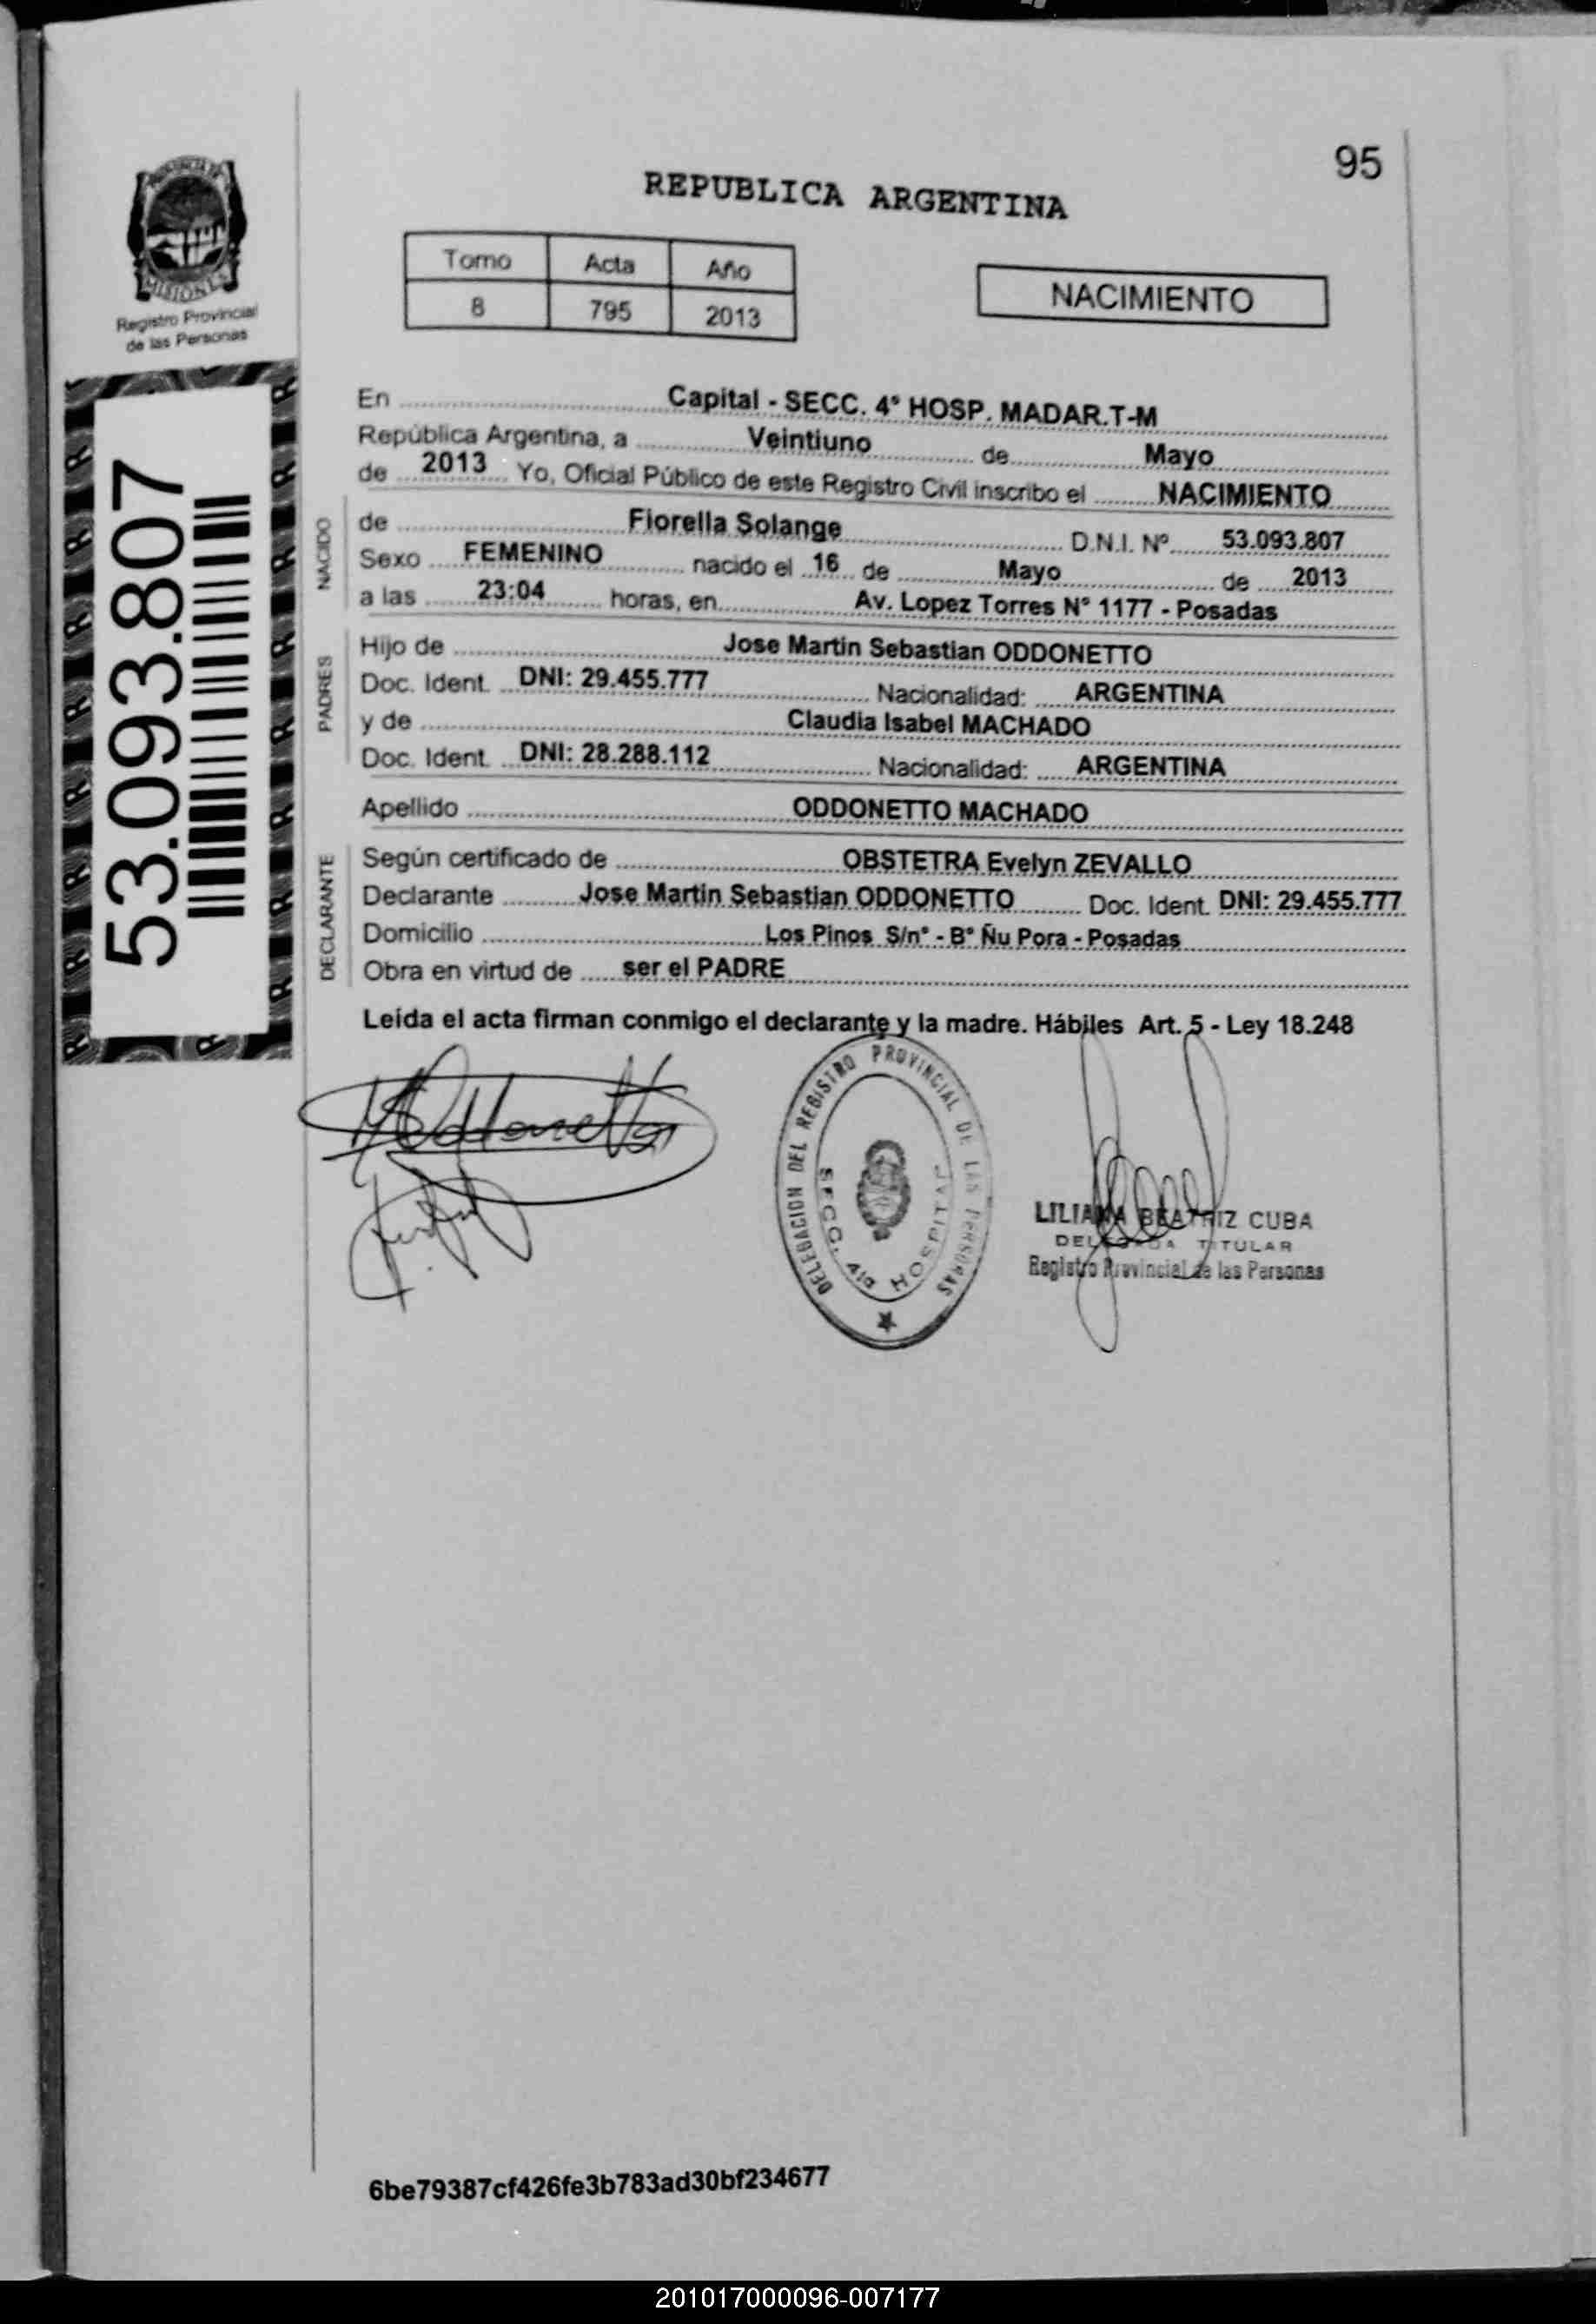 95
REPUBLICA ARGENTINA
PROVINCIA DE
MISIONES
Registro Provincial
de las Personas
Tomo Acta Año
8 795 2013
NACIMIENTO
53.093.807
En Capital - SECC. 4° HOSP. MADAR.T-M
República Argentina, a Veintiuno de Mayo
de 2013 Yo, Oficial Público de este Registro Civil inscribo el NACIMIENTO
NACIDO
de Fiorella Solange D.N.I. Nº 53.093.807
Sexo FEMENINO nacido el 16 de Mayo de 2013
a las 23:04 horas, en Av. Lopez Torres N° 1177 - Posadas
PADRES
Hijo de Jose Martin Sebastian ODDONETTO
Doc. Ident. DNI: 29.455.777 Nacionalidad: ARGENTINA
y de Claudia Isabel MACHADO
Doc. Ident. DNI: 28.288.112 Nacionalidad: ARGENTINA
Apellido ODDONETTO MACHADO
DECLARANTE
Según certificado de OBSTETRA Evelyn ZEVALLO
Declarante Jose Martin Sebastian ODDONETTO Doc. Ident. DNI: 29.455.777
Domicilio Los Pinos S/n° - B° Ñu Pora - Posadas
Obra en virtud de ser el PADRE
Leída el acta firman conmigo el declarante y la madre. Hábiles Art. 5 - Ley 18.248
DELEGACION DEL REGISTRO PROVINCIAL DE LAS PERSONAS
SECC. 4ta HOSPITAL
LILIANA BEATRIZ CUBA
DELEGADA TITULAR
Registro Provincial de las Personas
6be79387cf426fe3b783ad30bf234677
201017000096-007177